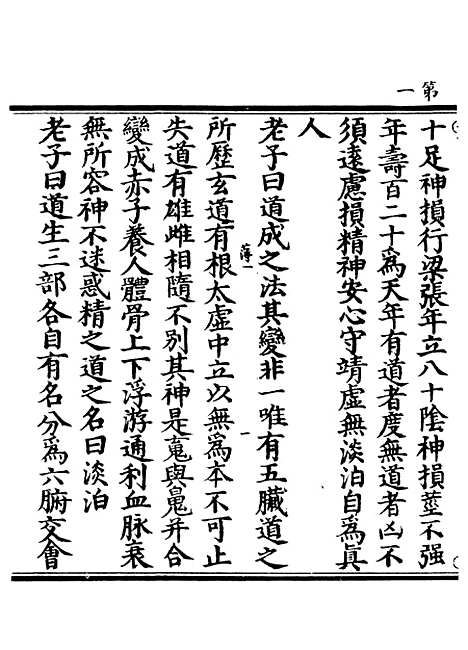 第一
十足神損行梁張年立八十陰神損莖不强
年壽百二十爲天年有道者度無道者凶不
須遠慮損精神安心守靖虛無淡泊自爲眞
人
老子曰道成之法其變非一唯有五臟道之
薄一
所歷玄道有根太虛中立以無爲本不可止
失道有雄雌相隨不別其神是䰟與鼂并合
變成赤子養人體骨上下浮游通利血脉衰
無所容神不迷惑精之道之名曰淡泊
老子曰道生三部各自有名分爲六腑交會